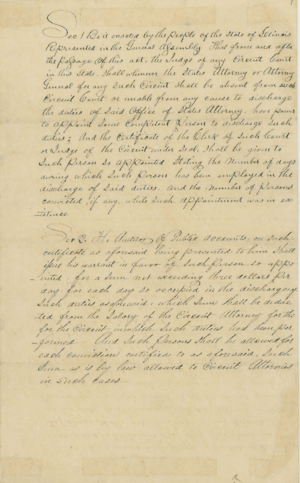 Sec 1 Be it enacted by the People of the State of Illinois
Represented in the General Assembly. That from and after
the passage of this act, the Judge of any Circuit Court
in this State, shall whenever the States Attorney or Attorney
General for any such Circuit shall be absent from such
Circuit Court or unable from any cause to discharge
the duties of said Office of State Attorney, have power
to appoint some competent Person to discharge such
duties; And the Certificate of the Clerk of such Court
or Judge of the Circuit under Seal, shall be given to
such Person so appointed stating the number of days
during which such Person has been employed in the
discharge of said duties, and the number of Persons
convicted, if any, while such appointment was in ex
istence
Sec 2. The Auditor of Public accounts, on such
certificate as aforesaid being presented to him shall
issue his warrant in favor of such person so appo
inted for a sum not exceeding three dollars per
day for each day so occupied in the discharge of
such duties as aforesaid; which sum shall be deduc
ted from the Salary of the Circuit Attorney for the
for the Circuit in which such duties had been per
formed. And such Persons shall be allowed for
each conviction certified to as aforesaid, such
sum as is by law allowed to Circuit Attornies
in such cases